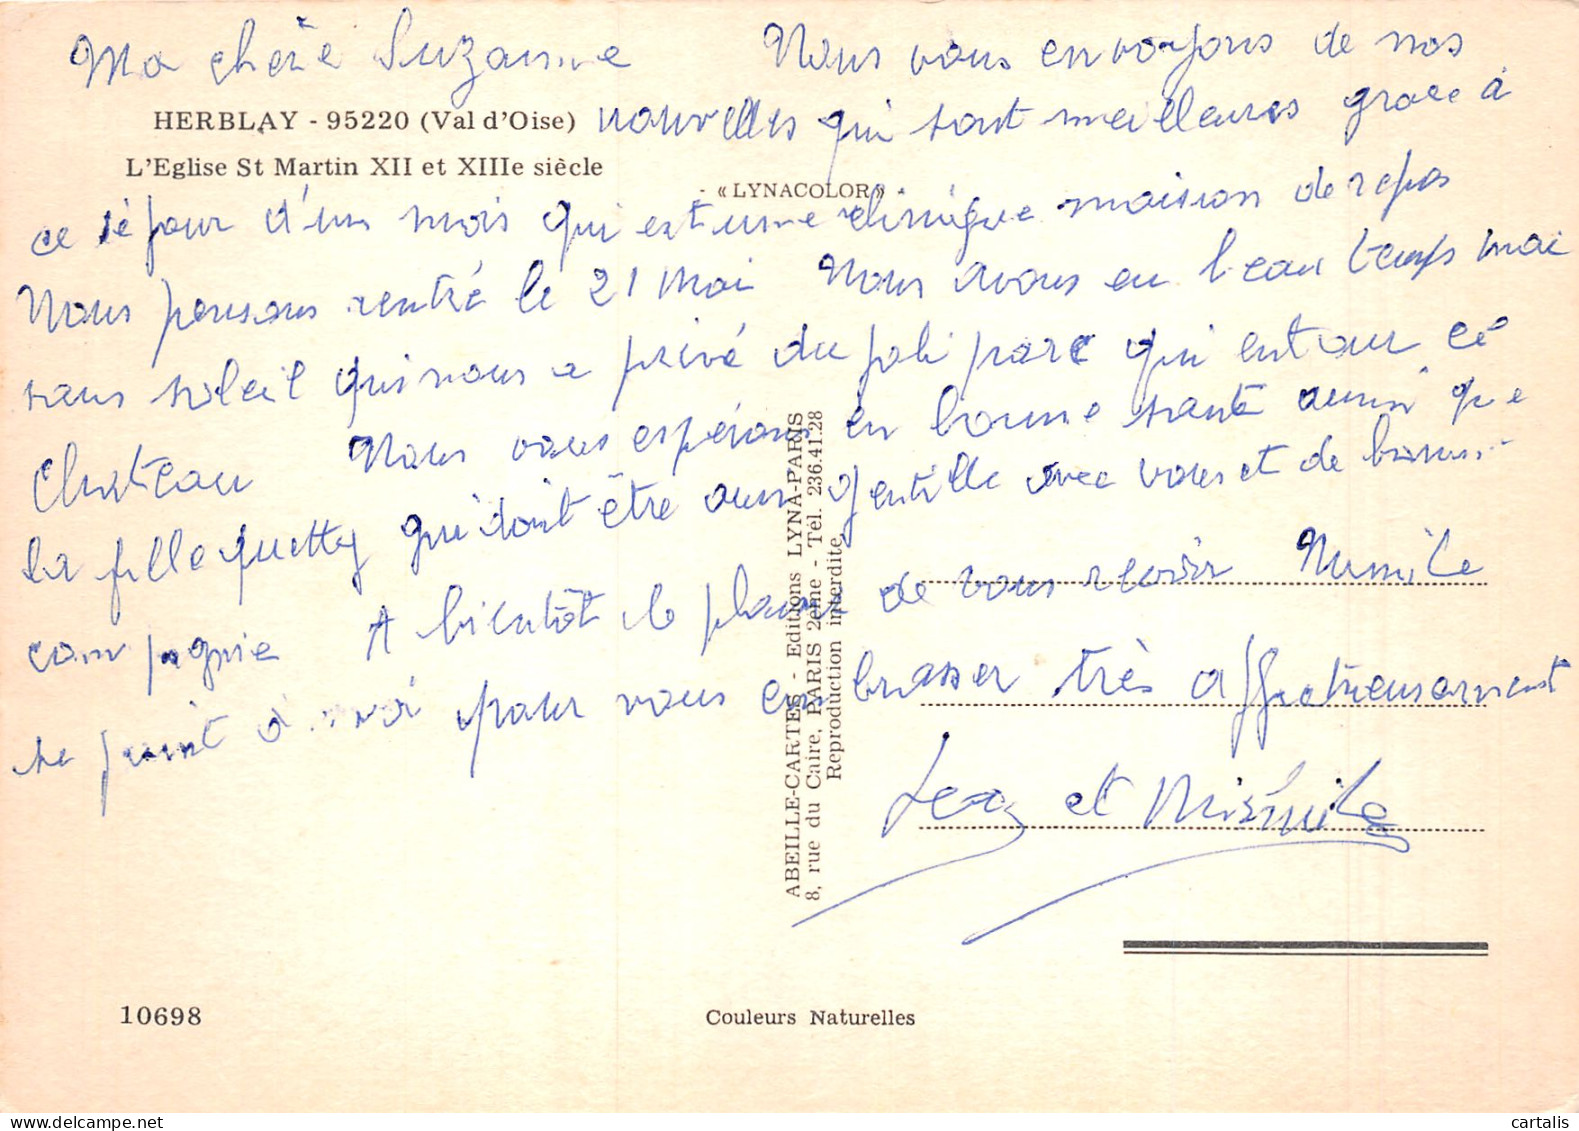 Ma chère Suzanne Nous vous envoyons de nos
HERBLAY - 95220 (Val d'Oise) nouvelles qui sont meilleures grace à
L'Eglise St Martin XII et XIIIe siècle
- « LYNACOLOR »
ce séjour d'un mois qui est une clinique maison de repos
Nous pensons rentré le 21 Mai Nous avons eu beau temps mai
sans soleil qui nous a privé du joli parc qui entour ce
Chateau Nous vous espérons en bonne santé aussi que
la fille quetty qui doit être aussi gentille avec vous et de bonne
compagnie A bientôt le plaisir de vous revoir
se joint à moi pour vous embrasser très affectueusement
et
ABEILLE-CARTES - Editions LYNA-PARIS
8, rue du Caire, PARIS 2ème - Tél. 236.41.28
Reproduction interdite
10698
Couleurs Naturelles
cartalis